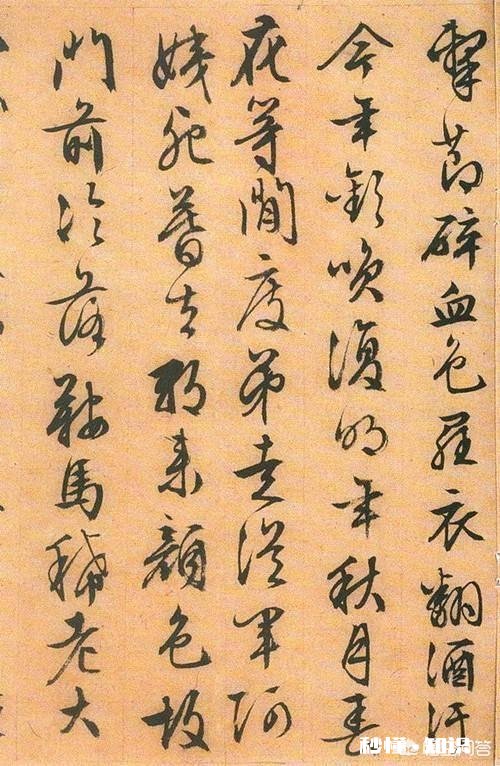 擊節碎血色羅衣翻酒汙
今年歡咲復明年秋月春
花等閒度弟走從軍阿
姨死暮去朝来顏色故
門前冷落鞍馬稀老大
秒懂·知识
问答